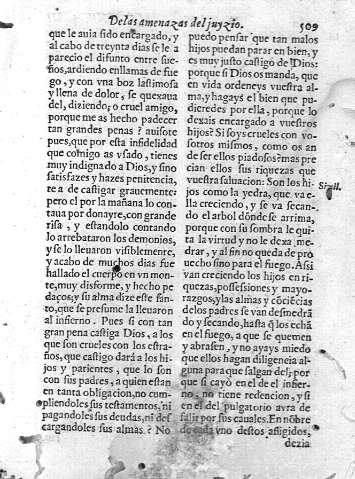 De las amenazas del juyzio. 509
que le auia sido encargado, y
al cabo de treynta dias se le a
parecio el difunto entre sue-
ños, ardiendo en llamas de fue
go, y con vna boz lastimosa
y llena de dolor, se quexaua
del, diziendo; o cruel amigo,
porque me as hecho padecer
tan grandes penas? auisote
pues, que por esta infidelidad
que comigo as vsado, tienes
muy indignado a Dios, y sino
satisfazes y hazes penitencia,
te a de castigar grauemente:
pero el por la mañana lo con
taua por donayre, con grande
risa, y estandolo contando
lo arrebataron los demonios,
y se lo lleuaron visiblemente,
y acabo de muchos dias fue
hallado el cuerpo en vn mon-
te, muy disforme, y hecho pe
daços; y su alma dize este san-
to, que se presume la lleuaron
al infierno. Pues si con tan
gran pena castiga Dios, a los
que son crueles con los estra-
ños, que castigo dará a los hi-
jos y parientes, que lo son
con sus padres, a quien estan
en tanta obligacion, no cum-
pliendoles sus testamentos, ni
pagandoles sus deudas, ni des
cargandoles sus almas? No
puedo pensar que tan malos
hijos puedan parar en bien, y
es muy justo castigo de Dios:
porque si Dios os manda, que
en vida ordeneys vuestra al-
ma, y hagays el bien que pu-
dieredes por ella, porque lo
dexais encargado a vuestros
hijos? Si soys crueles con vo-
sotros mismos, como os an
de ser ellos piadosos? mas pre
cian ellos sus riquezas que
vuestra saluacion: Son los hi-
jos como la yedra, que va e-
lla creciendo, y se va secan-
do el arbol dõnde se arrima,
porque con su sombra le qui-
ta la virtud y no le dexa me-
drar, y al fin no queda de pro
hecho sino para el fuego. Assi
van creciendo los hijos en ri-
quezas, possessiones y mayo-
razgos, y las almas y cõciẽcias
de los padres se van desmedrã
do y secando, hasta q̃ los echã
en el fuego, a que se quemen
y abrasen, y no ayays miedo
que ellos hagan diligencia al-
guna para que salgan del; por
que si cayò en el de el infier
no, no tiene redencion, y si
en el del purgatorio avra de
salir por sus cauales. En nõbre
de cada vno destos afligidos,
dezia
Simil.